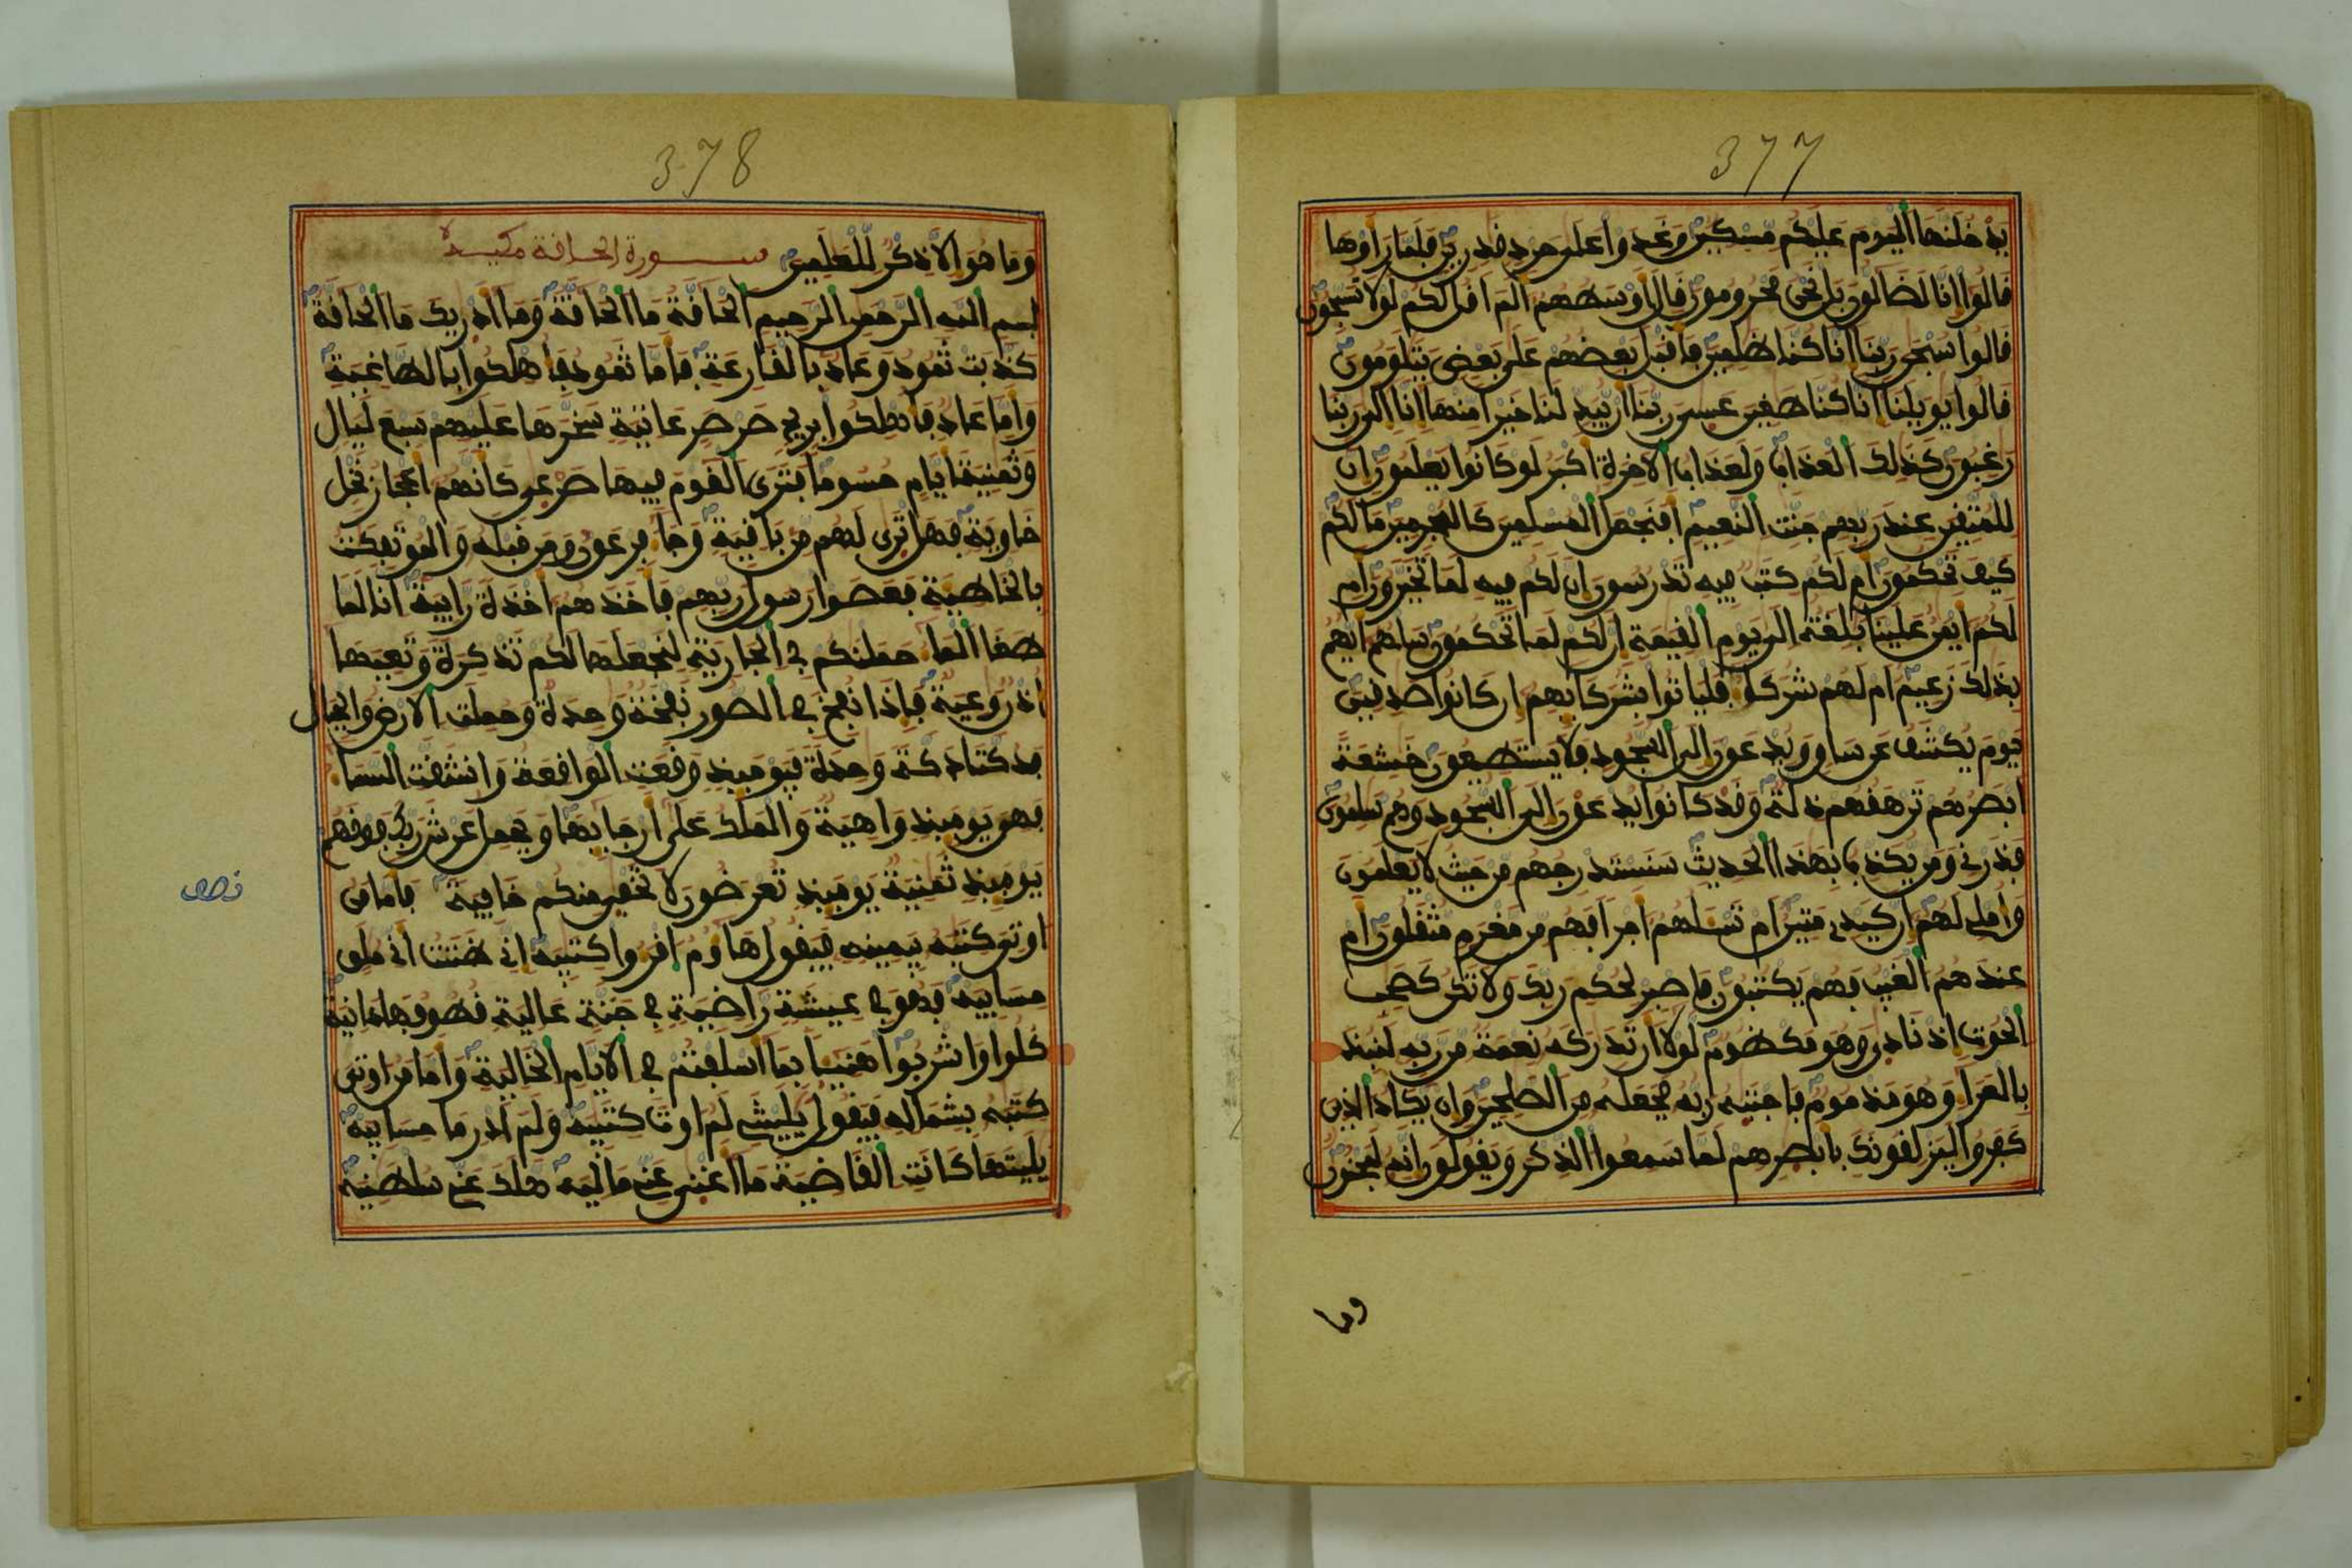 377
يدخلنها اليوم عليكم مسكين وغدوا على حرد قدرين فلما راوها
قالوا انا لضالون بل نحن محرومون قال اوسطهم الم اقل لكم لولا تسبحون
قالوا سبحن ربنا انا كنا ظلمين فاقبل بعضهم على بعض يتلومون
قالوا يويلنا انا كنا طغين عسى ربنا ان يبدلنا خيرا منها انا الى ربنا
رغبون كذلك العذاب ولعذاب الاخرة اكبر لو كانوا يعلمون ان
للمتقين عند ربهم جنت النعيم افنجعل المسلمين كالمجرمين ما لكم
كيف تحكمون ام لكم كتب فيه تدرسون ان لكم فيه لما تخيرون ام
لكم ايمن علينا بلغة الى يوم القيمة ان لكم لما تحكمون سلهم ايهم
بذلك زعيم ام لهم شركا فلياتوا بشركايهم ان كانوا صدقين
يوم يكشف عن ساق ويدعون الى السجود فلا يستطيعون خشعة
ابصرهم ترهقهم ذلة وقد كانوا يدعون الى السجود وهم سلمون
فذرني ومن يكذب بهذا الحديث سنستدرجهم من حيث لا يعلمون
واملي لهم ان كيدي متين ام تسلهم اجرا فهم من مغرم مثقلون ام
عندهم الغيب فهم يكتبون فاصبر لحكم ربك ولا تكن كصحب
الحوت اذ نادى وهو مكظوم لولا ان تدركه نعمة من ربه لنبذ
بالعرا وهو مذموم فاجتبه ربه فجعله من الصلحين وان يكاد الذين
كفروا ليزلقونك بابصرهم لما سمعوا الذكر ويقولون انه لمجنون
وما
378
وما هو الا ذكر للعلمين سورة الحاقة مكية
بسم الله الرحمن الرحيم الحاقة ما الحاقة وما ادريك ما الحاقة
كذبت ثمود وعاد بالقارعة فاما ثمود فاهلكوا بالطاغية
واما عاد فاهلكوا بريح صرصر عاتية سخرها عليهم سبع ليال
وثمنية ايام حسوما فترى القوم فيها صرعى كانهم اعجاز نخل
خاوية فهل ترى لهم من باقية وجا فرعون ومن قبله والموتفكت
بالخاطية فعصوا رسول ربهم فاخذهم اخذة رابية انا لما
طغا الما حملنكم في الجارية لنجعلها لكم تذكرة وتعيها
اذن وعية فاذا نفخ في الصور نفخة وحدة وحملت الارض والجبال
فدكتا دكة وحدة فيوميذ وقعت الواقعة وانشقت السما
فهي يوميذ واهية والملك على ارجايها ويحمل عرش ربك فوقهم
يوميذ ثمنية يوميذ تعرضون لا تخفى منكم خافية فاما من
اوتي كتبه بيمينه فيقول هاوم اقروا كتبيه اني ظننت اني ملق
حسابيه فهو في عيشة راضية في جنة عالية قطوفها دانية
كلوا واشربوا هنيا بما اسلفتم في الايام الخالية واما من اوتي
كتبه بشماله فيقول يليتني لم اوت كتبيه ولم ادر ما حسابيه
يليتها كانت القاضية ما اغنى عني ماليه هلك عني سلطنيه
نصف